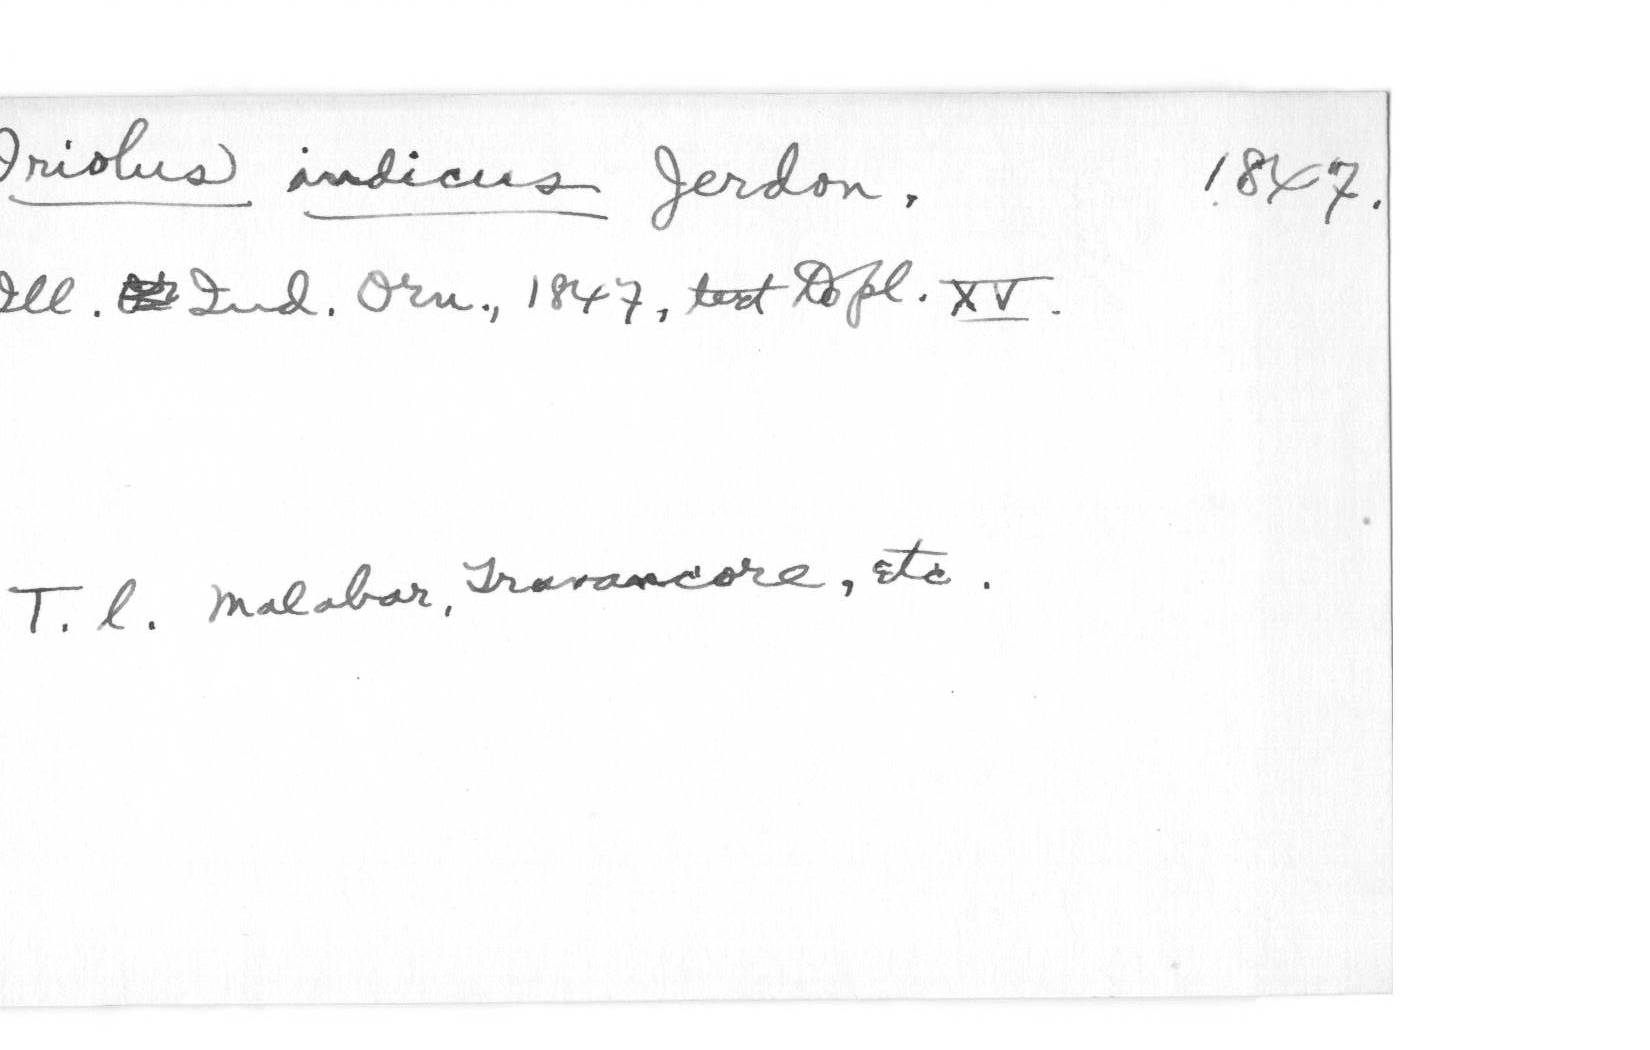 Oriolus indicus Jerdon. 1847.
Ill. Ind. Orn., 1847, text to pl. XV.
T. l. Malabar, Travancore, etc.